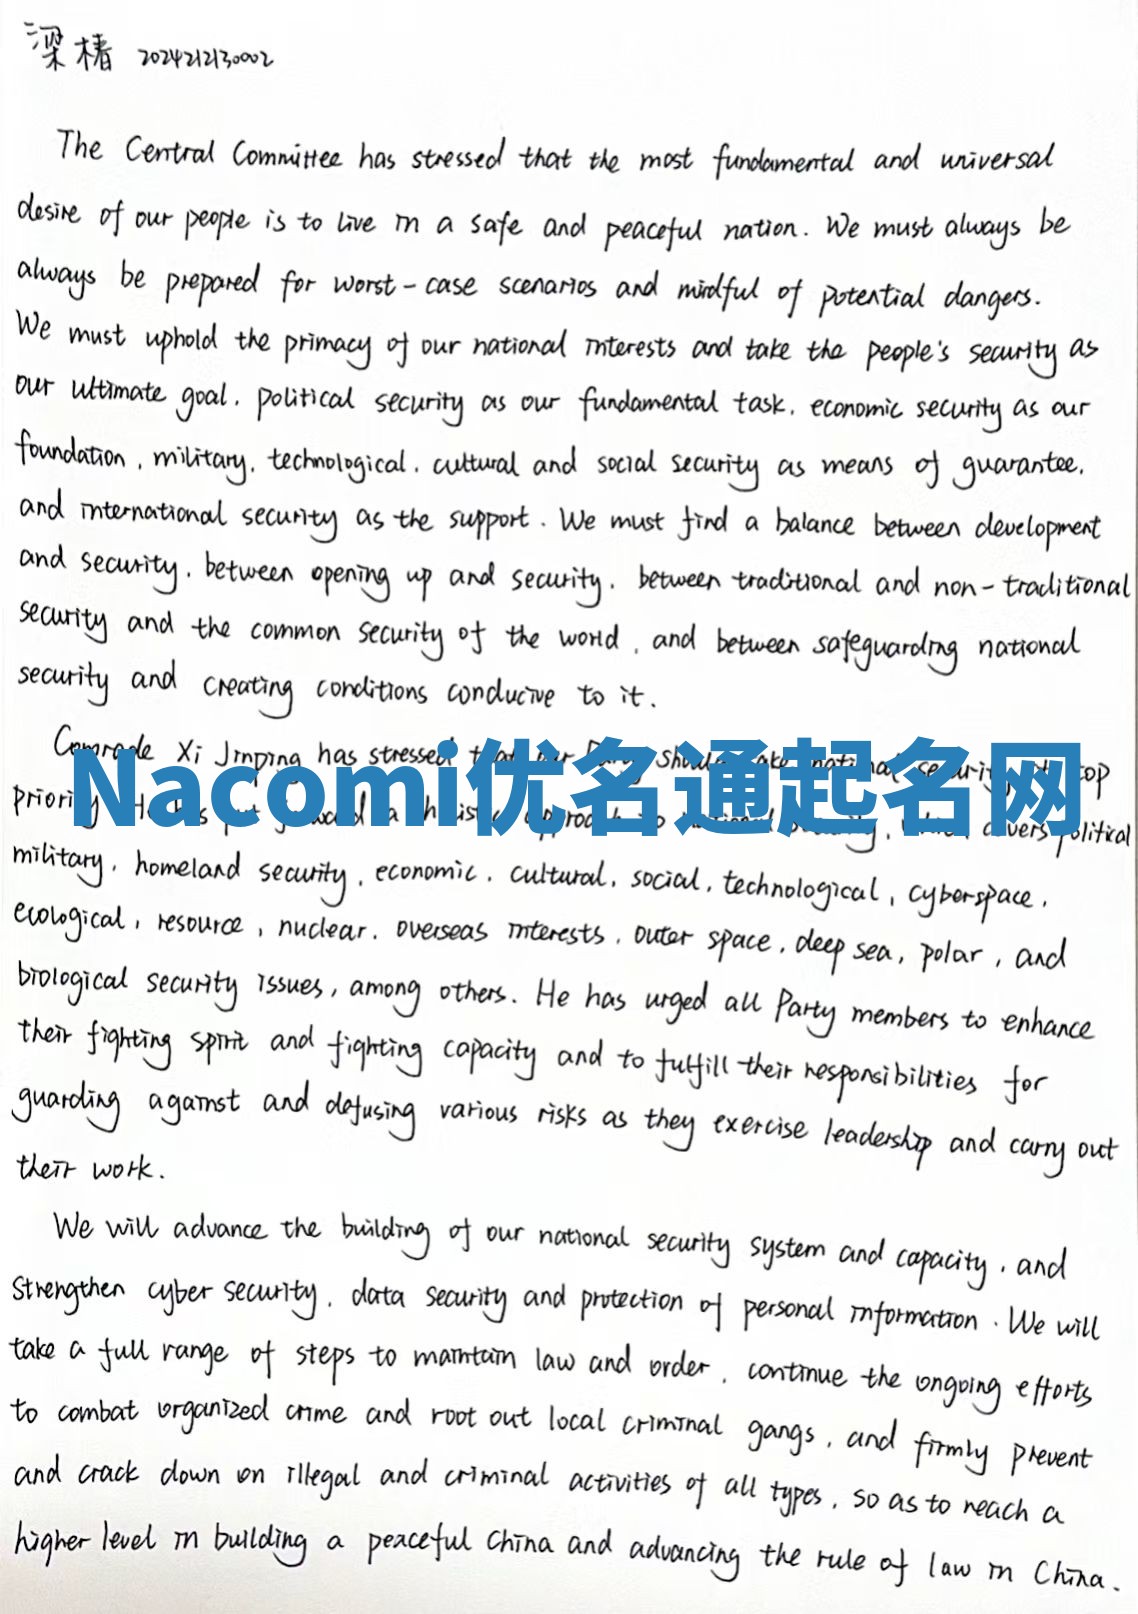 梁椿 2024212130002
The Central Committee has stressed that the most fundamental and universal
desire of our people is to live in a safe and peaceful nation. We must always be
always be prepared for worst-case scenarios and mindful of potential dangers.
We must uphold the primacy of our national interests and take the people's security as
our ultimate goal, political security as our fundamental task, economic security as our
foundation, military, technological, cultural and social security as means of guarantee,
and international security as the support. We must find a balance between development
and security, between opening up and security, between traditional and non-traditional
security and the common security of the world, and between safeguarding national
security and creating conditions conducive to it.
Comrade Xi Jinping has stressed that our Party should take national security top
Nacomi优名通起名网
priority. He has put forward a holistic approach to national security, which covers political
military, homeland security, economic, cultural, social, technological, cyberspace,
ecological, resource, nuclear, overseas interests, outer space, deep sea, polar, and
biological security issues, among others. He has urged all Party members to enhance
their fighting spirit and fighting capacity and to fulfill their responsibilities for
guarding against and defusing various risks as they exercise leadership and carry out
their work.
We will advance the building of our national security system and capacity, and
strengthen cyber security, data security and protection of personal information. We will
take a full range of steps to maintain law and order, continue the ongoing efforts
to combat organized crime and root out local criminal gangs, and firmly prevent
and crack down on illegal and criminal activities of all types, so as to reach a
higher level in building a peaceful China and advancing the rule of law in China.